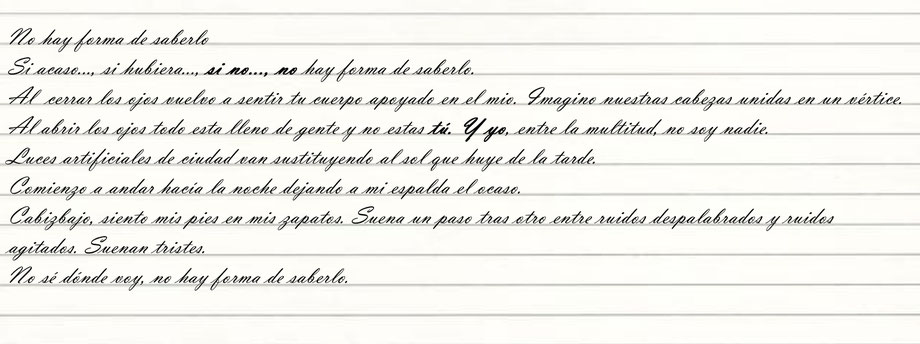 No hay forma de saberlo
Si acaso..., si hubiera..., si no..., no hay forma de saberlo.
Al cerrar los ojos vuelvo a sentir tu cuerpo apoyado en el mio. Imagino nuestras cabezas unidas en un vértice.
Al abrir los ojos todo esta lleno de gente y no estas tú. Y yo, entre la multitud, no soy nadie.
Luces artificiales de ciudad van sustituyendo al sol que huye de la tarde.
Comienzo a andar hacia la noche dejando a mi espalda el ocaso.
Cabizbajo, siento mis pies en mis zapatos. Suena un paso tras otro entre ruidos despalabrados y ruidos
agitados. Suenan tristes.
No sé dónde voy, no hay forma de saberlo.